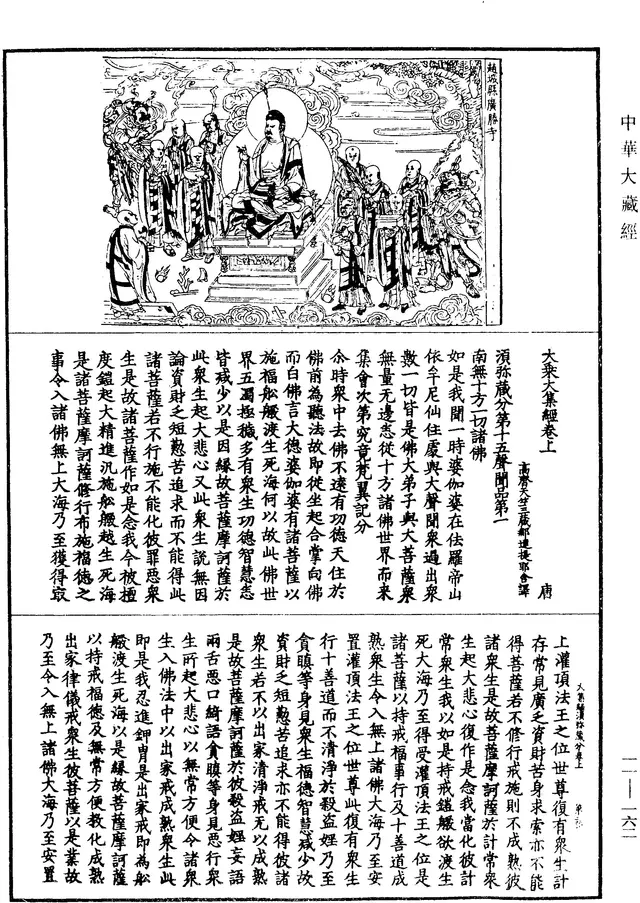 中華大藏經
趙城縣廣勝寺
大乘大集經卷上 唐
高齊天竺三藏那連提耶舍譯
須弥藏分第十五聲聞品第一
南無十方一切諸佛
如是我聞一時婆伽婆在佉羅帝山
依牟尼仙住處與大聲聞衆過出衆
數一切皆是佛大弟子與大菩薩衆
無量无邊悉從十方諸佛世界而来
集會次第究竟梵翼記分
尒時衆中去佛不遠有功德天住於
佛前為聽法故即從坐起合掌向佛
而白佛言大德婆伽婆有諸菩薩以
施福舩艥渡生死海何以故此佛世
界五濁極穢多有衆生功德智慧悉
皆减少以是因緣故菩薩摩訶薩於
此衆生起大悲心又此衆生説無因
論資財乏短懃苦追求而不能得此
諸菩薩若不行施不能化彼罪惡衆
生是故諸菩薩作如是念我今被檀
度鎧起大精進汎施舩艥越生死海
是諸菩薩摩訶薩修行布施福德之
事令入諸佛無上大海乃至獲得㝡
上灌頂法王之位世尊復有衆生計
存常見廣乏資財苦身求索亦不能
得菩薩若不修行戒施則不成熟彼
諸衆生是故菩薩摩訶薩於計常衆
生起大悲心復作是念我當化彼計
常衆生我以如是持戒鎧艥欲渡生
死大海乃至得受灌頂法王之位是
諸菩薩以持戒福事行及十善道成
熟衆生令入無上諸佛大海乃至安
置灌頂法王之位世尊此復有衆生
行十善道而不清淨於殺盗婬乃至
貪瞋等身見衆生福德智慧减少故
資財乏短懃苦追求亦不能得彼諸
衆生若不以出家清淨戒无以成熟
是故菩薩摩訶薩於彼殺盗婬妄語
兩舌惡口綺語貪瞋等身見悪行衆
生所起大悲心以無常方便令諸衆
生入佛法中以出家戒成熟衆生此
即是我忍進鉀冑是出家戒即為舩
艥渡生死海以是縁故菩薩摩訶薩
以持戒福德及無常方便教化成熟
出家律儀戒衆生彼菩薩以是業故
乃至令入無上諸佛大海乃至安置
一一—一六二